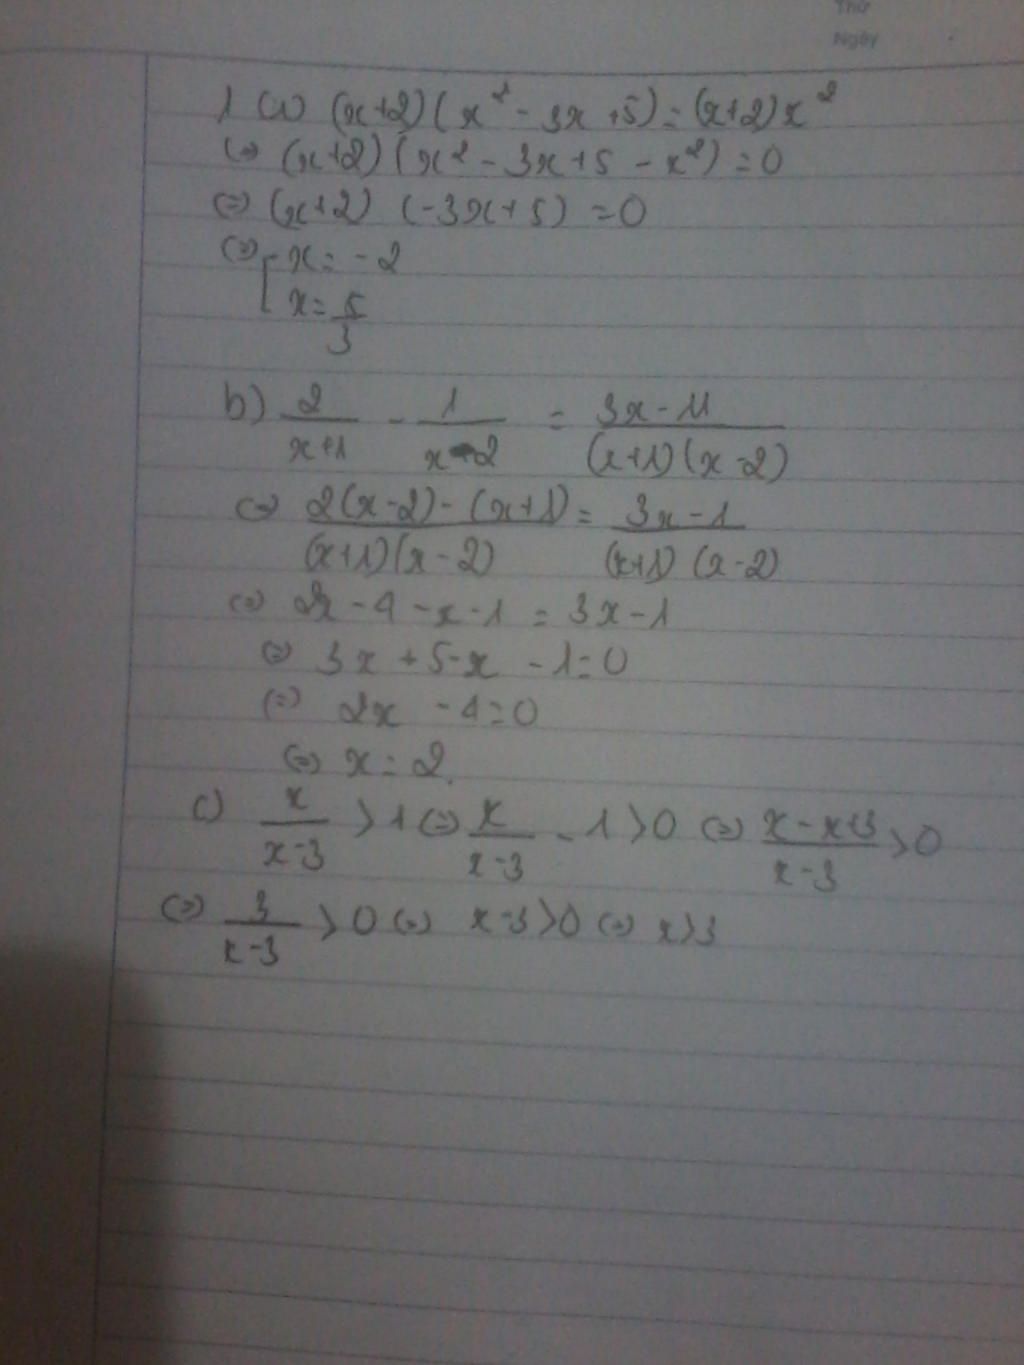 Thứ
Ngày
1 a) (x+2)(x² - 3x +5) = (x+2)x²
(=) (x+2)(x² - 3x+5 - x²) = 0
(=) (x+2) (-3x+5) = 0
(=) [ x = -2
x = 5/3
b) 2/(x+1) - 1/(x-2) = (3x-11)/((x+1)(x-2))
(=) (2(x-2) - (x+1))/((x+1)(x-2)) = (3x-1)/((x+1)(x-2))
(=) 2x - 4 - x - 1 = 3x - 1
(=) 3x + 5 - x - 1 = 0
(=) 2x - 4 = 0
(=) x = 2.
c) x/(x-3) > 1 (=) x/(x-3) - 1 > 0 (=) (x-x+3)/(x-3) > 0
(=) 3/(x-3) > 0 (=) x-3 > 0 (=) x > 3